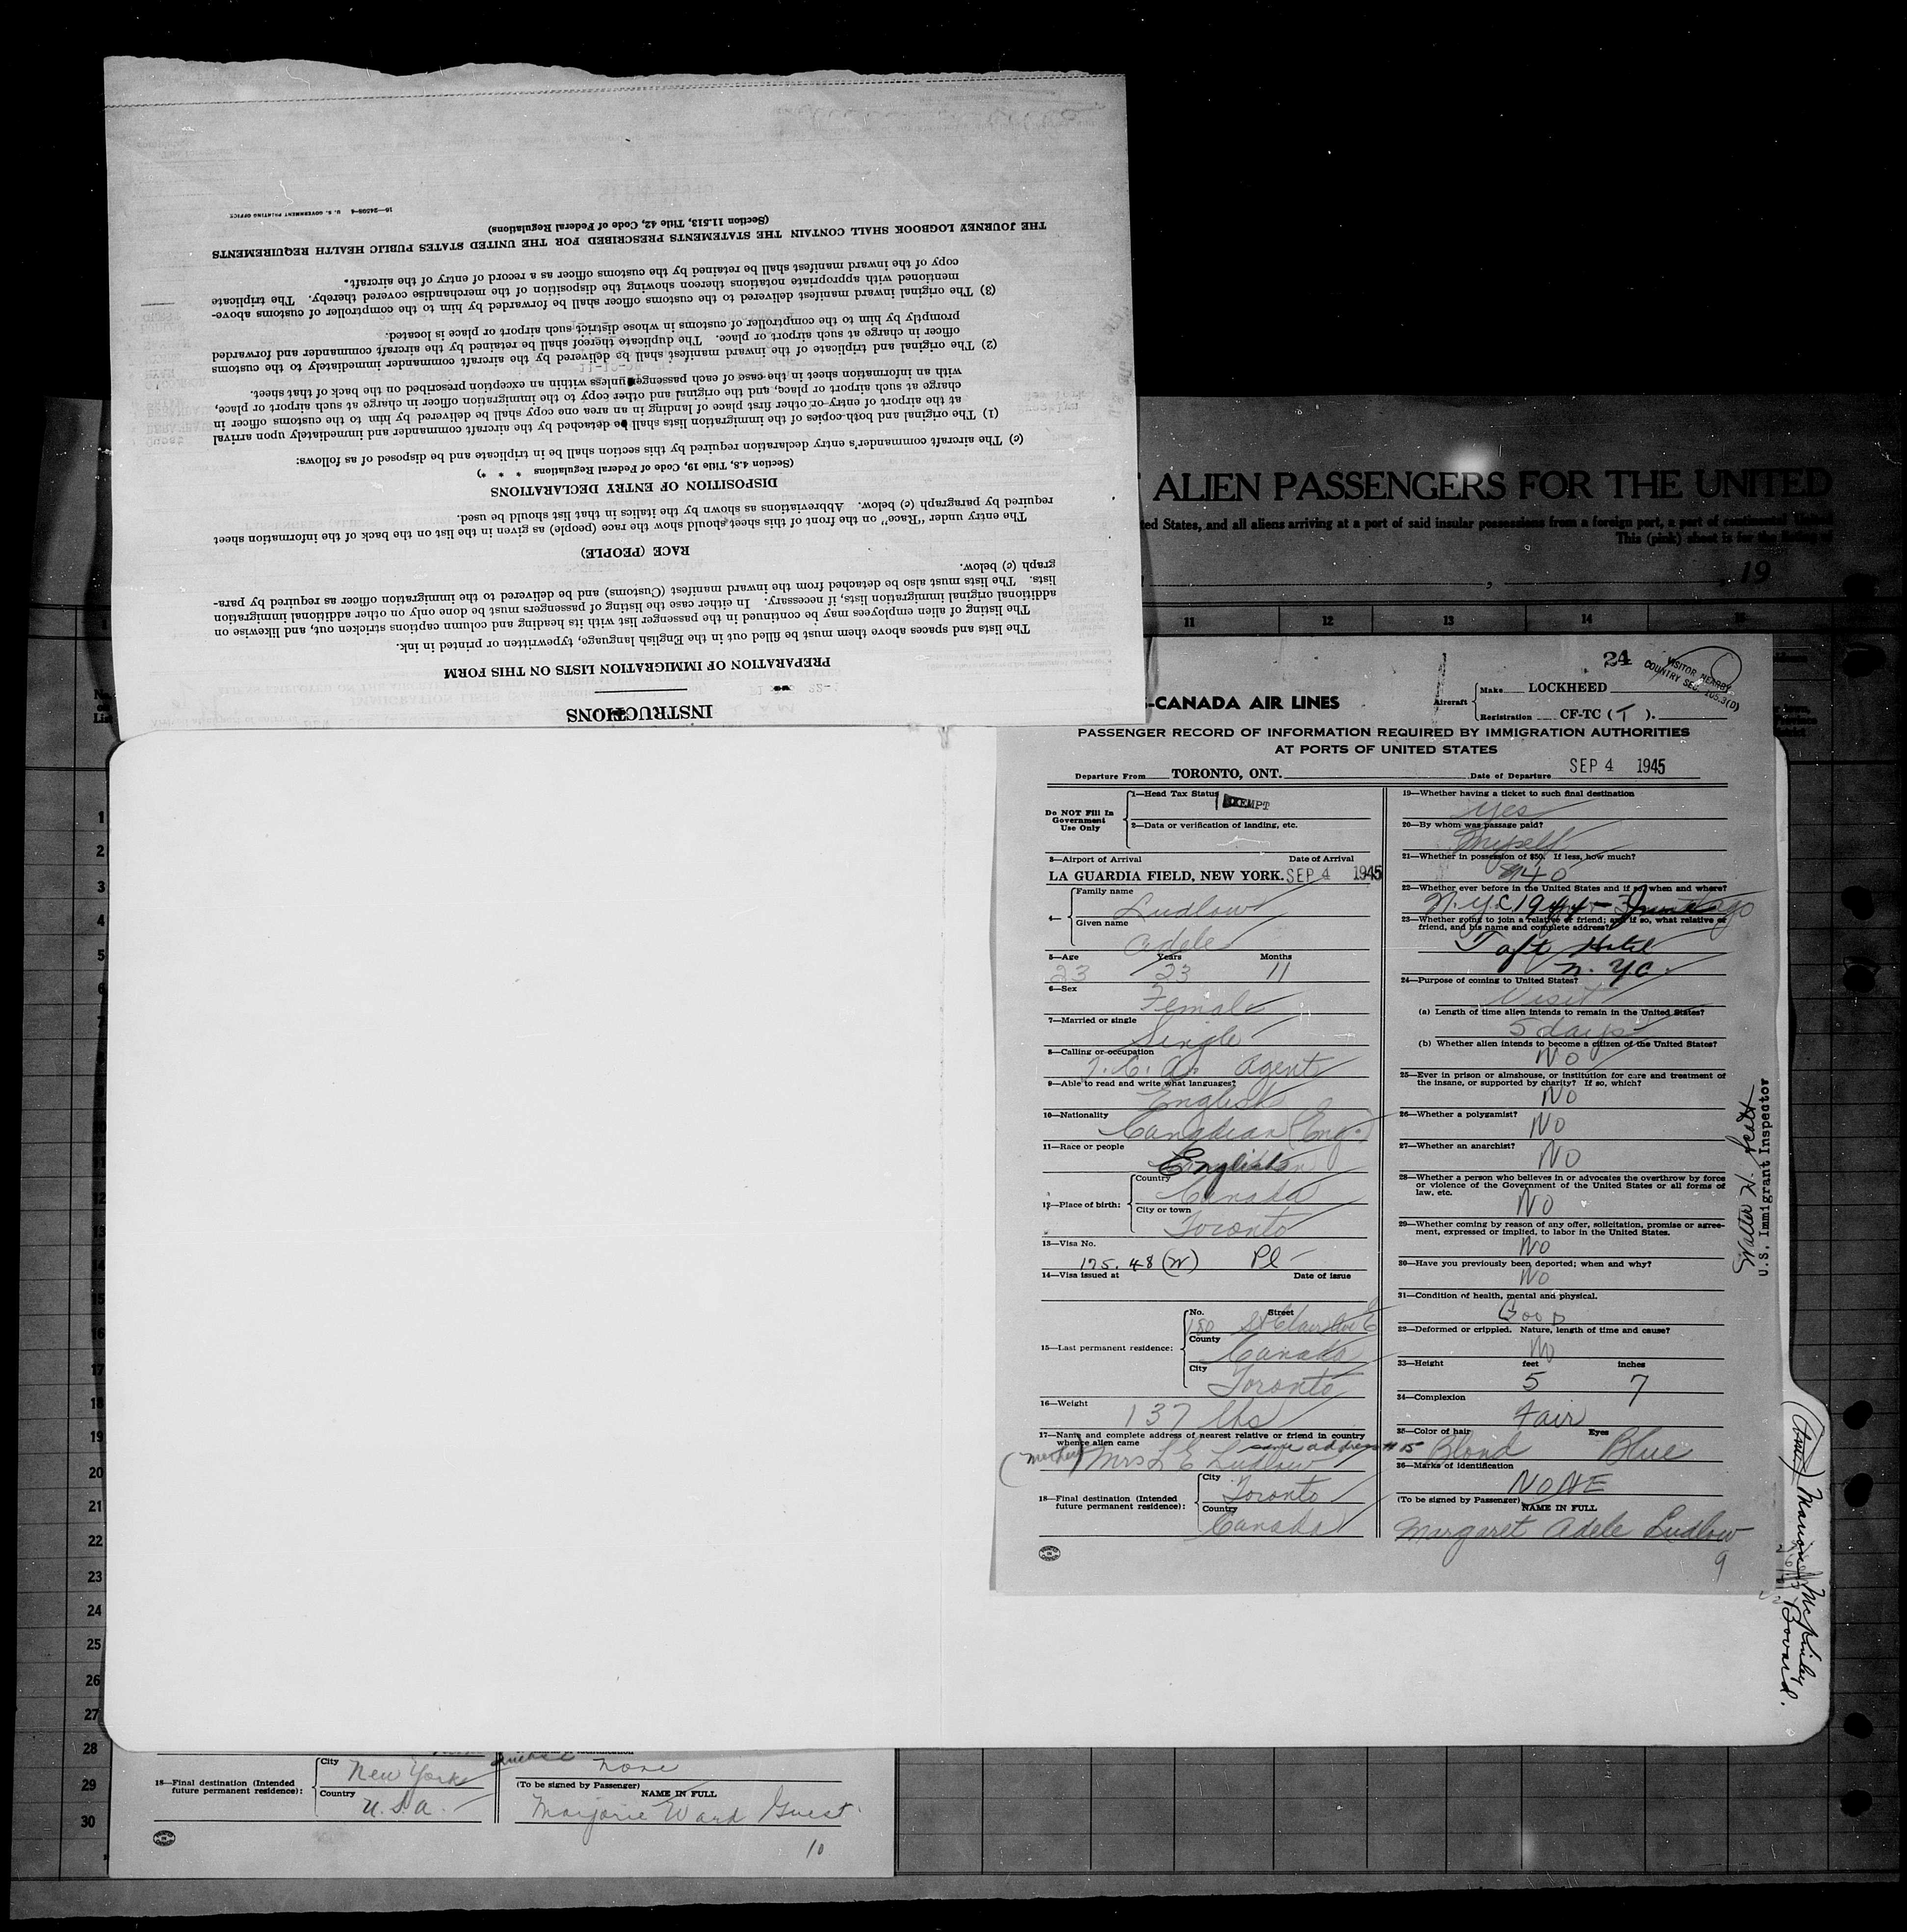 INSTRUCTIONS
PREPARATION OF IMMIGRATION LISTS ON THIS FORM
The lists and spaces above them must be filled out in the English language, typewritten or printed in ink.
The listing of alien employees may be continued in the passenger list with its heading and column captions stricken out, and likewise on
additional original immigration lists, if necessary. In either case the listing of passengers must be done only on other additional immigration
lists. The lists must also be detached from the inward manifest (Customs) and be delivered to the immigration officer as required by para-
graph (c) below.
RACE (PEOPLE)
The entry under "Race" on the front of this sheet should show the race (people) as given in the list on the back of the information sheet
required by paragraph (c) below. Abbreviations as shown by the italics in that list should be used.
DISPOSITION OF ENTRY DECLARATIONS
(Section 4.8, Title 19, Code of Federal Regulations * * *)
(c) The aircraft commander's entry declaration required by this section shall be in triplicate and be disposed of as follows:
(1) The original and both copies of the immigration lists shall be detached by the aircraft commander and immediately upon arrival
at the airport of entry or other first place of landing in an area one copy shall be delivered by him to the customs officer in
charge at such airport or place, and the original and other copy to the immigration officer in charge at such airport or place,
with an information sheet in the case of each passenger unless within an exception prescribed on the back of that sheet.
(2) The original and triplicate of the inward manifest shall be delivered by the aircraft commander immediately to the customs
officer in charge at such airport or place. The duplicate thereof shall be retained by the aircraft commander and forwarded
promptly by him to the comptroller of customs in whose district such airport or place is located.
(3) The original inward manifest delivered to the customs officer shall be forwarded by him to the comptroller of customs above-
mentioned with appropriate notations thereon showing the disposition of the merchandise covered thereby. The triplicate
copy of the inward manifest shall be retained by the customs officer as a record of entry of the aircraft.
THE JOURNEY LOGBOOK SHALL CONTAIN THE STATEMENTS PRESCRIBED FOR THE UNITED STATES PUBLIC HEALTH REQUIREMENTS
(Section 11.513, Title 42, Code of Federal Regulations)
16—24598-4 U. S. GOVERNMENT PRINTING OFFICE
ALIEN PASSENGERS FOR THE UNITED
ted States, and all aliens arriving at a port of said insular possessions from a foreign port, a port of continental
This (pink) sheet is for the listing of
, 19
11 12 13 14
24
VISITOR NEARBY
COUNTRY SEC. 105.3(D)
-CANADA AIR LINES
Aircraft
Make LOCKHEED
Registration CF-TC ( T ).
PASSENGER RECORD OF INFORMATION REQUIRED BY IMMIGRATION AUTHORITIES
AT PORTS OF UNITED STATES
Departure From TORONTO, ONT. Date of Departure SEP 4 1945
Do NOT Fill In
Government
Use Only
1—Head Tax Status EXEMPT
2—Data or verification of landing, etc.
3—Airport of Arrival Date of Arrival
LA GUARDIA FIELD, NEW YORK. SEP 4 1945
4—
Family name
Ludlow
Given name
Adele
5—Age Years Months
23 23 11
6—Sex
Female
7—Married or single
Single
8—Calling or occupation
T. C. A. Agent
9—Able to read and write what languages?
English
10—Nationality
Canadian (Eng.)
11—Race or people
English
12—Place of birth:
Country
Canada
City or town
Toronto
13—Visa No.
175. 48 (W) Pl
14—Visa issued at Date of issue
15—Last permanent residence:
No. Street
180 St Clair Ave E
County
Canada
City
Toronto
16—Weight
137 lbs
17—Name and complete address of nearest relative or friend in country
whence alien came
same address # 15
(mother) Mrs L E Ludlow
18—Final destination (Intended
future permanent residence):
City
Toronto
Country
Canada
19—Whether having a ticket to such final destination
yes
20—By whom was passage paid?
Myself
21—Whether in possession of $50. If less, how much?
$40
22—Whether ever before in the United States and if so, when and where?
N.Y.C 1944 - June
23—Whether going to join a relative or friend; and if so, what relative or
friend, and his name and complete address?
Taft Hotel
N. Y.C.
24—Purpose of coming to United States?
Visit
(a) Length of time alien intends to remain in the United States?
5 days
(b) Whether alien intends to become a citizen of the United States?
NO
25—Ever in prison or almshouse, or institution for care and treatment of
the insane, or supported by charity? If so, which?
NO
26—Whether a polygamist?
NO
27—Whether an anarchist?
NO
28—Whether a person who believes in or advocates the overthrow by force
or violence of the Government of the United States or all forms of
law, etc.
NO
29—Whether coming by reason of any offer, solicitation, promise or agree-
ment, expressed or implied, to labor in the United States.
NO
30—Have you previously been deported; when and why?
NO
31—Condition of health, mental and physical.
GOOD
32—Deformed or crippled. Nature, length of time and cause?
No
33—Height feet inches
5 7
34—Complexion
Fair
35—Color of hair Eyes
Blond Blue
36—Marks of identification
NONE
(To be signed by Passenger) NAME IN FULL
Margaret Adele Ludlow
9
Walter H. Scott
U.S. Immigrant Inspector
Marion McKinley
Bovard.
1
2
3
4
5
6
7
12
13
14
15
16
17
18
19
20
21
22
23
24
25
26
27
28
29
30
18—Final destination (Intended
future permanent residence):
City
New York
Country
U.S.A.
None
(To be signed by Passenger)
NAME IN FULL
Marjorie Ward Guest
10